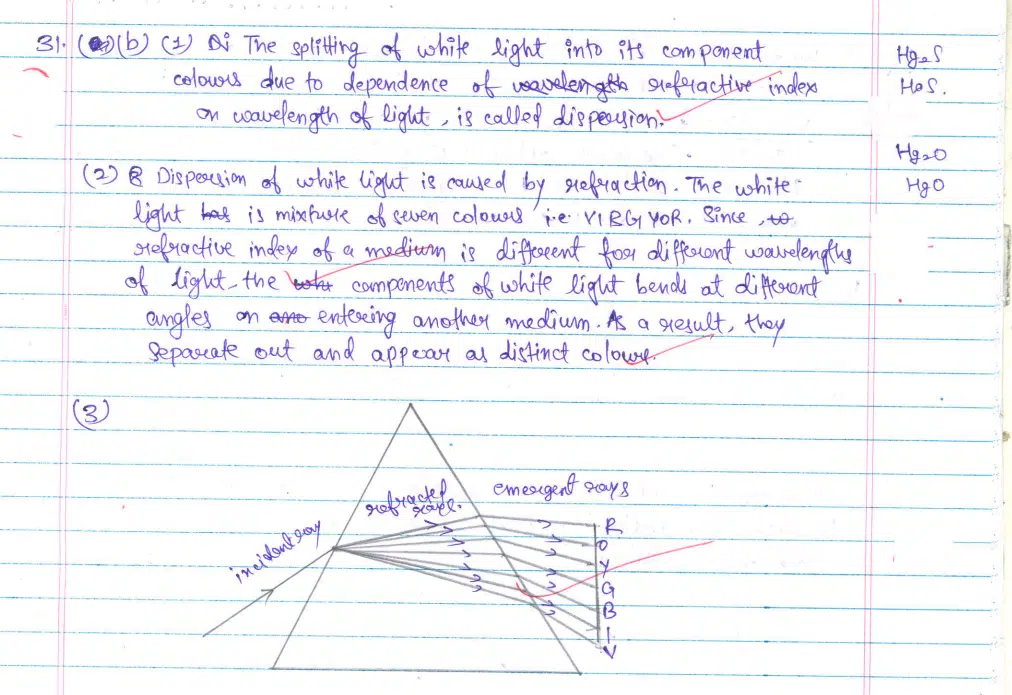 31. (b) (1) The splitting of white light into its component
colours due to dependence of wavelength refractive index
on wavelength of light, is called dispersion.
(2) Dispersion of white light is caused by refraction. The white
light has is mixture of seven colours i.e. VIBGYOR. Since, to
refractive index of a medium is different for different wavelengths
of light, the components of white light bends at different
angles on entering another medium. As a result, they
separate out and appear as distinct colours.
(3)
incident ray
refracted
rays.
emergent rays
R
O
Y
G
B
I
V
Hg2S
HgS.
Hg2O
HgO